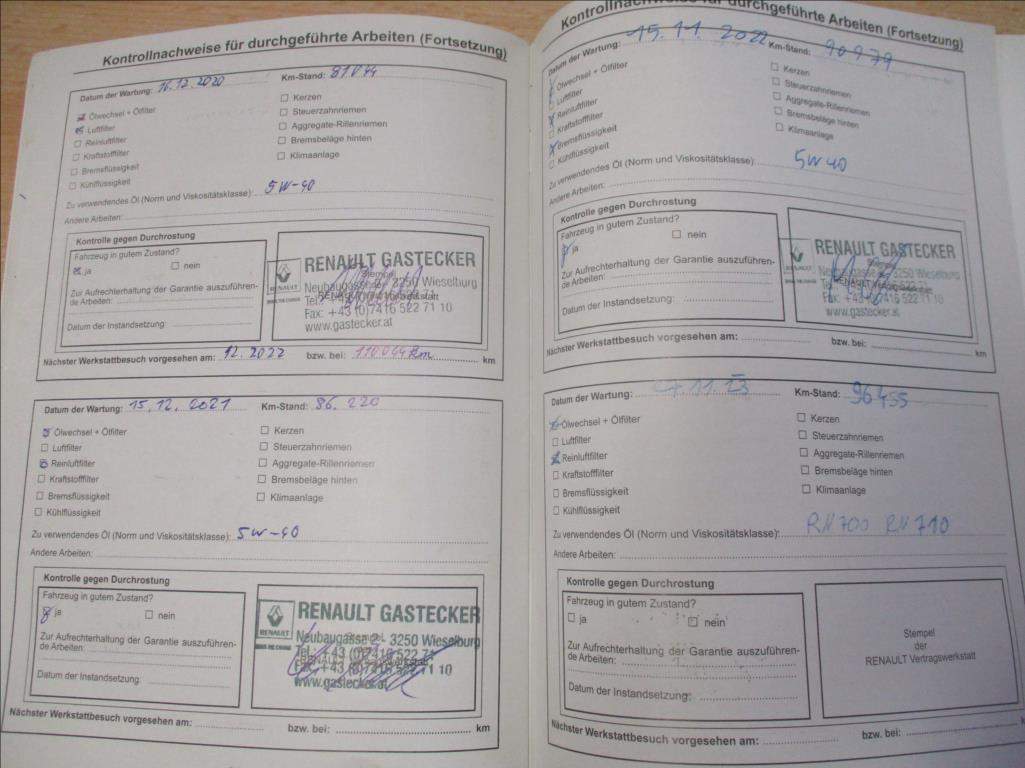 Kontrollnachweise für durchgeführte Arbeiten (Fortsetzung)
Datum der Wartung: 16.12.2020 Km-Stand: 81044
Ölwechsel + Ölfilter
Luftfilter
Reinluftfilter
Kraftstofffilter
Bremsflüssigkeit
Kühlflüssigkeit
Kerzen
Steuerzahnriemen
Aggregate-Rillenriemen
Bremsbeläge hinten
Klimaanlage
Zu verwendendes Öl (Norm und Viskositätsklasse): 5W-40
Andere Arbeiten:
Kontrolle gegen Durchrostung
Fahrzeug in gutem Zustand?
ja nein
Zur Aufrechterhaltung der Garantie auszuführen-
de Arbeiten:
Datum der Instandsetzung:
RENAULT GASTECKER
Neubaugasse 2 - 3250 Wieselburg
Tel.: +43 (0)7416 522 71
Fax: +43 (0)7416 522 71 10
www.gastecker.at
Nächster Werkstattbesuch vorgesehen am: 12.2022 bzw. bei: 110044 Km km
Datum der Wartung: 15.12.2021 Km-Stand: 86.220
Ölwechsel + Ölfilter
Luftfilter
Reinluftfilter
Kraftstofffilter
Bremsflüssigkeit
Kühlflüssigkeit
Kerzen
Steuerzahnriemen
Aggregate-Rillenriemen
Bremsbeläge hinten
Klimaanlage
Zu verwendendes Öl (Norm und Viskositätsklasse): 5W-40
Andere Arbeiten:
Kontrolle gegen Durchrostung
Fahrzeug in gutem Zustand?
ja nein
Zur Aufrechterhaltung der Garantie auszuführen-
de Arbeiten:
Datum der Instandsetzung:
RENAULT
RENAULT GASTECKER
Neubaugasse 2 - 3250 Wieselburg
Tel.: +43 (0)7416 522 71
Fax: +43 (0)7416 522 71 10
www.gastecker.at
Nächster Werkstattbesuch vorgesehen am: bzw. bei: km
Kontrollnachweise für durchgeführte Arbeiten (Fortsetzung)
Datum der Wartung: 15.11.2022 Km-Stand: 90979
Ölwechsel + Ölfilter
Luftfilter
Reinluftfilter
Kraftstofffilter
Bremsflüssigkeit
Kühlflüssigkeit
Kerzen
Steuerzahnriemen
Aggregate-Rillenriemen
Bremsbeläge hinten
Klimaanlage
Zu verwendendes Öl (Norm und Viskositätsklasse): 5W40
Andere Arbeiten:
Kontrolle gegen Durchrostung
Fahrzeug in gutem Zustand?
ja nein
Zur Aufrechterhaltung der Garantie auszuführen-
de Arbeiten:
Datum der Instandsetzung:
RENAULT GASTECKER
Neubaugasse 2 - 3250 Wieselburg
Tel.: +43 (0)7416 522 71
Fax: +43 (0)7416 522 71 10
www.gastecker.at
Nächster Werkstattbesuch vorgesehen am: bzw. bei: km
Datum der Wartung: 11.23 Km-Stand: 96455
Ölwechsel + Ölfilter
Luftfilter
Reinluftfilter
Kraftstofffilter
Bremsflüssigkeit
Kühlflüssigkeit
Kerzen
Steuerzahnriemen
Aggregate-Rillenriemen
Bremsbeläge hinten
Klimaanlage
Zu verwendendes Öl (Norm und Viskositätsklasse): RN700 RN710
Andere Arbeiten:
Kontrolle gegen Durchrostung
Fahrzeug in gutem Zustand?
ja nein
Zur Aufrechterhaltung der Garantie auszuführen-
de Arbeiten:
Datum der Instandsetzung:
Stempel
der
RENAULT Vertragswerkstatt
Nächster Werkstattbesuch vorgesehen am: bzw. bei: km